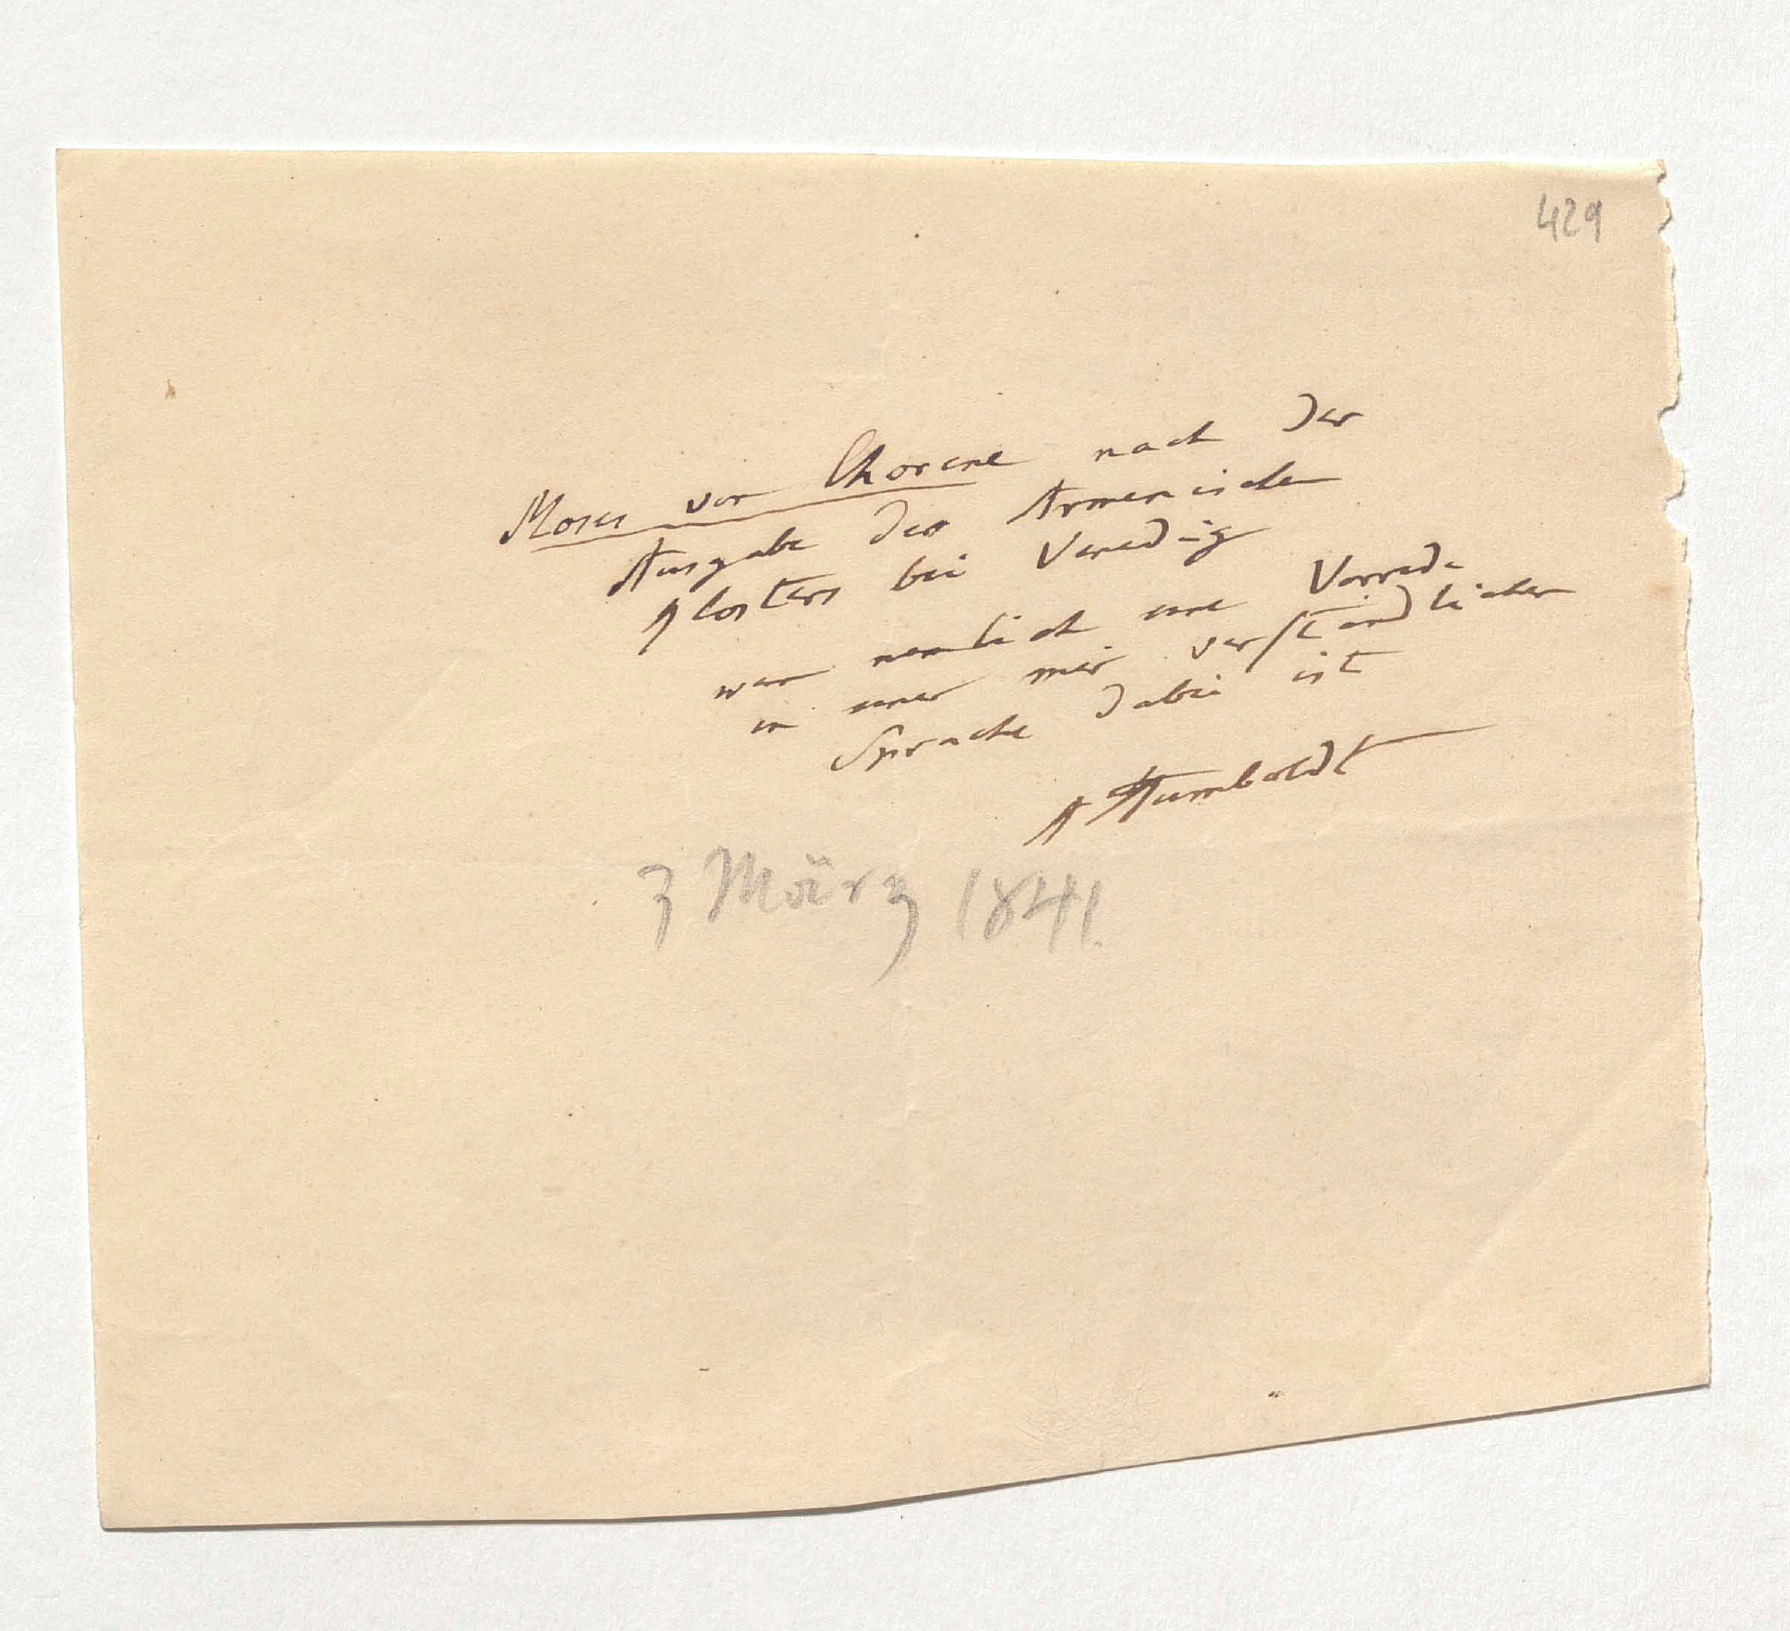 429
Moses von Chorene nach der
Ausgabe des Armenischen
Klosters bei Venedig
wen nemlich eine Vorrede
in einer mir verständlichen
Sprache dabei ist
A Humboldt
3 März 1841.